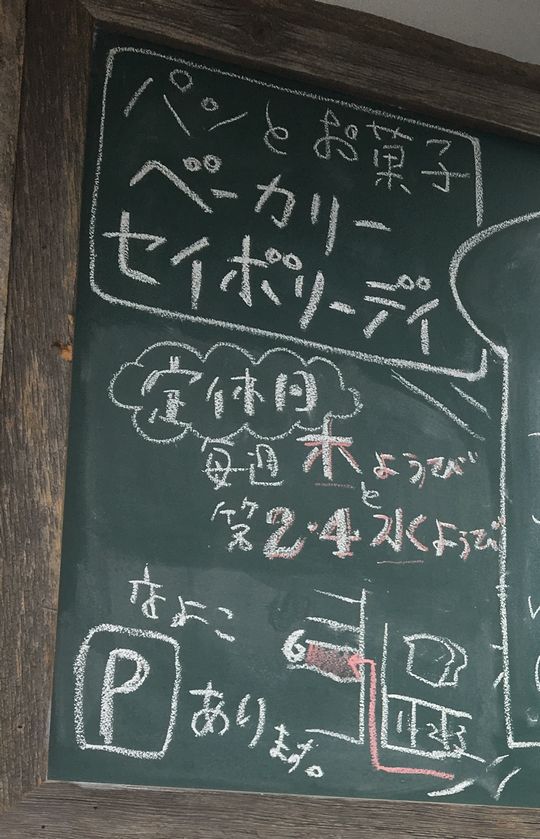 パンとお菓子
ベーカリー
セイボリーディ
定休日
毎週 木ようび
と
第2・4水ようび
なよこ
P あります。
6
1 2 3